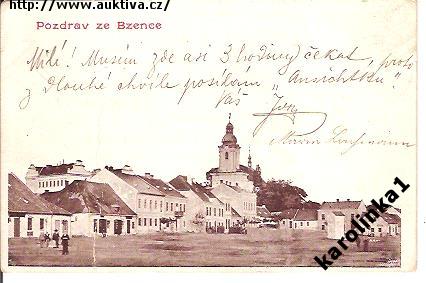 http://www.auktiva.cz/
Pozdrav ze Bzence
Milé! Musím zde asi 3 hodiny čekat, proto
z Dlouhé chvíle posílám „Ansichtku".
Váš
karolinka1